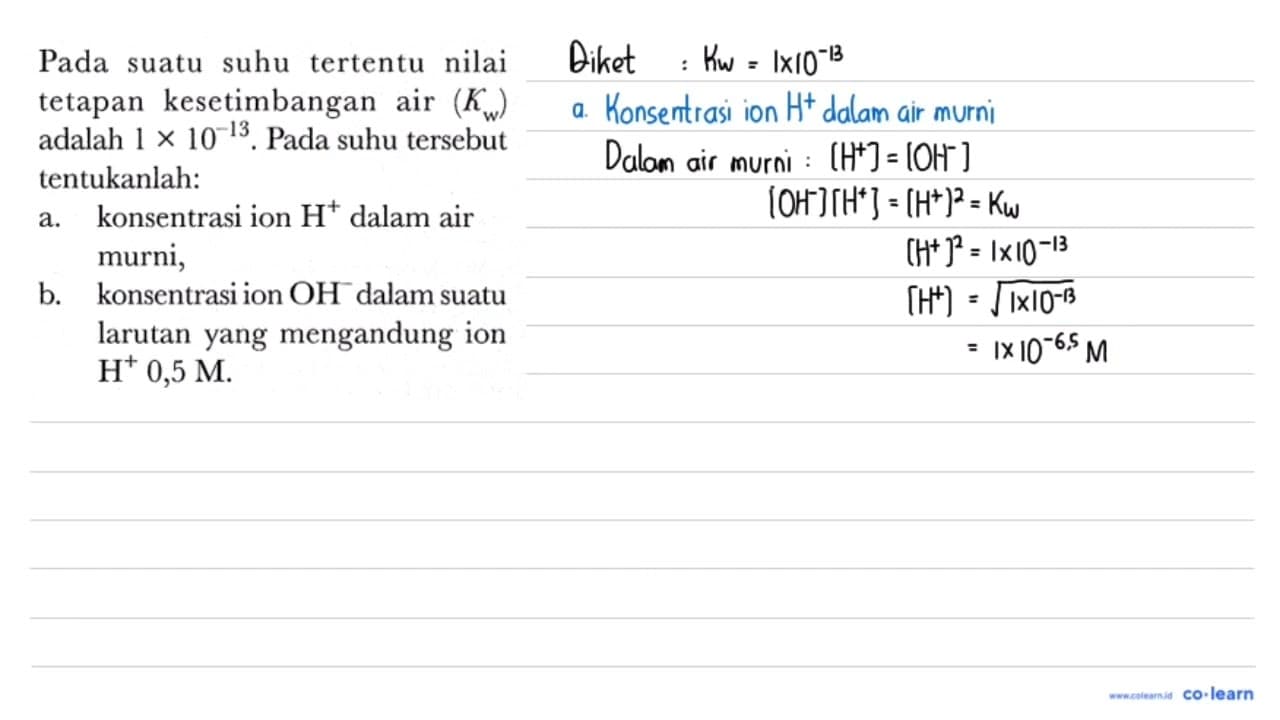 Pada suatu suhu tertentu nilai
tetapan kesetimbangan air (K_w)
adalah 1 × 10⁻¹³. Pada suhu tersebut
tentukanlah:
a. konsentrasi ion H⁺ dalam air
murni,
b. konsentrasi ion OH⁻ dalam suatu
larutan yang mengandung ion
H⁺ 0,5 M.
Diket : Kw = 1×10⁻¹³
a. Konsentrasi ion H⁺ dalam air murni
Dalam air murni : [H⁺] = [OH⁻]
[OH⁻][H⁺] = [H⁺]² = Kw
[H⁺]² = 1×10⁻¹³
[H⁺] = √1×10⁻¹³
= 1×10⁻⁶,⁵ M
www.colearn.id co·learn